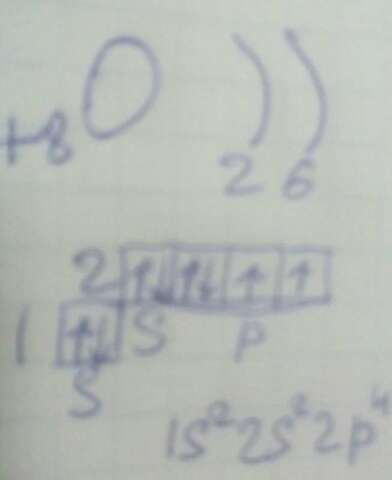 +8 O
2 6
2 ↑↓ ↑↓ ↑ ↑
1 ↑↓ S P
S
1S²2S²2p⁴